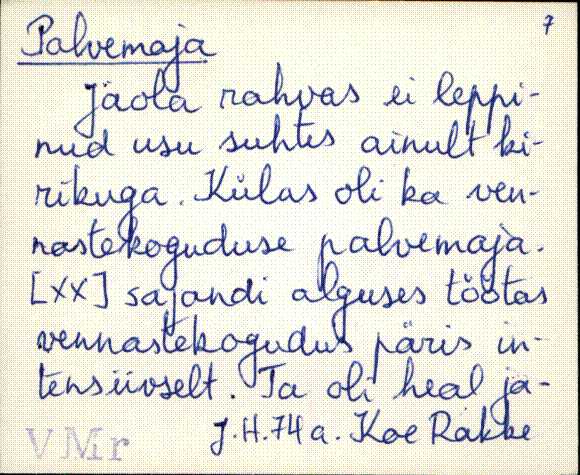 7
Palvemaja
Jäola rahvas ei leppi-
nud usu suhtes ainult ki-
rikuga. Külas oli ka ven-
nastekoguduse palvemaja.
[XX] sajandi alguses töötas
vennastekogudus päris in-
tensiivselt. Ta oli heal jä-
J.H. 74 a. Koe Rakke
VMr